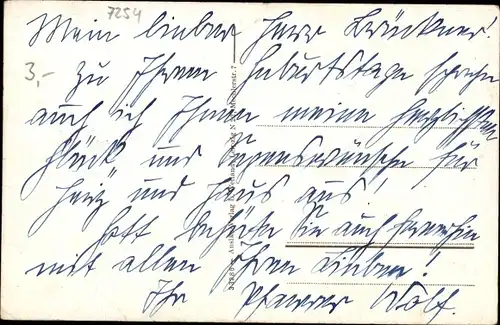 7254
Mein lieber Herr Brückner!
3,-
Zu Ihrem Geburtstage spreche
auch ich Ihnen meine herzlichsten
Glück und Segenswünsche für
Herz und Haus aus!
Gott behüte Sie auch fernerhin
mit allen Ihren Lieben!
Ihr Pfarrer Wolf.